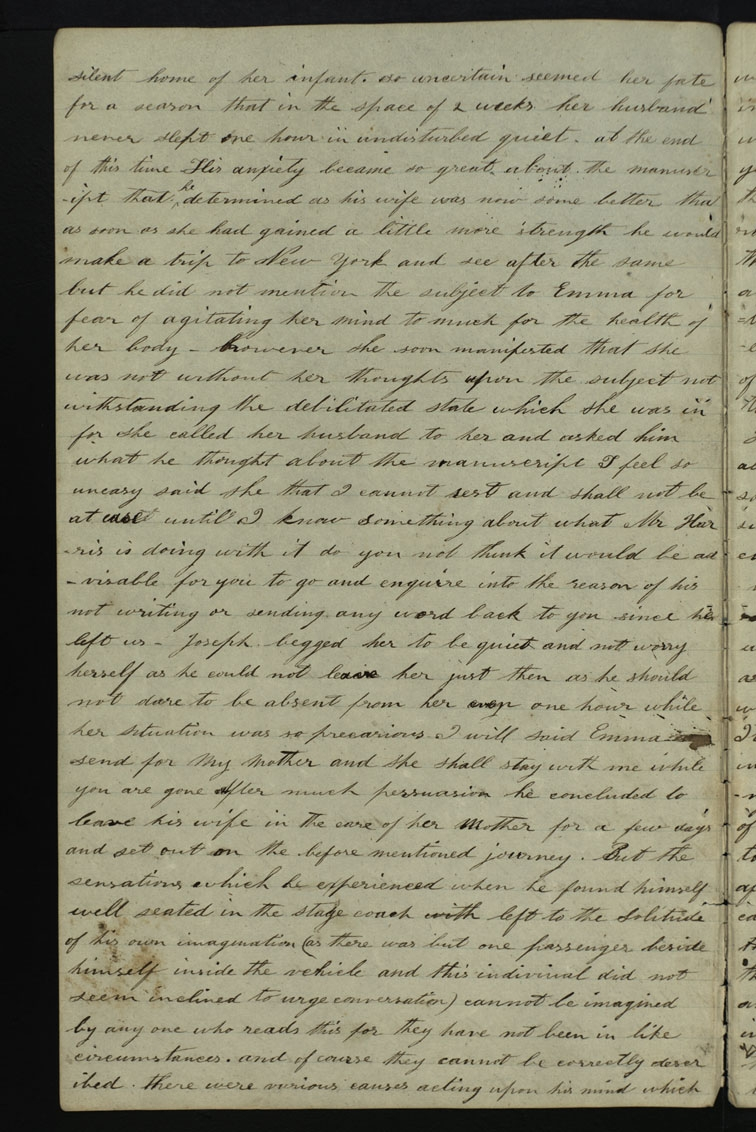 silent home of her infant. so uncertain seemed her fate
for a season that in the space of 2 weeks her husband
never slept one hour in undisturbed quiet. at the end
of this time His anxiety became so great about the manuscr
-ipt that he determined as his wife was now some better that
as soon as she had gained a little more strength he would
make a trip to New York and see after the same
but he did not mention the subject to Emma for
fear of agitating her mind to much for the health of
her body - however she soon manifested that she
was not without her thoughts upon the subject not
withstanding the debilitated state which she was in
for she called her husband to her and asked him
what he thought about the manuscript I feel so
uneasy said she that I cannot rest and shall not be
at ease until I know something about what Mr Har
-ris is doing with it do you not think it would be ad
-visable for you to go and enquire into the reason of his
not writing or sending any word back to you since he
left us - Joseph begged her to be quiet and not worry
herself as he could not leave her just then as he should
not dare to be absent from her even one hour while
her situation was so precarious I will said Emma
send for My Mother and she shall stay with me while
you are gone After much persuasion he concluded to
leave his wife in the care of her Mother for a few days
and set out on the before mentioned journey. But the
sensations which he experienced when he found himself
well seated in the stage coach with left to the Solitude
of his own imagination (as there was but one passenger beside
himself inside the vehicle and this indiviual did not
seem inclined to urge conversation) cannot be imagined
by any one who reads this for they have not been in like
circumstances. and of course they cannot be correctly descr
ibed. there were various causes acting upon his mind which